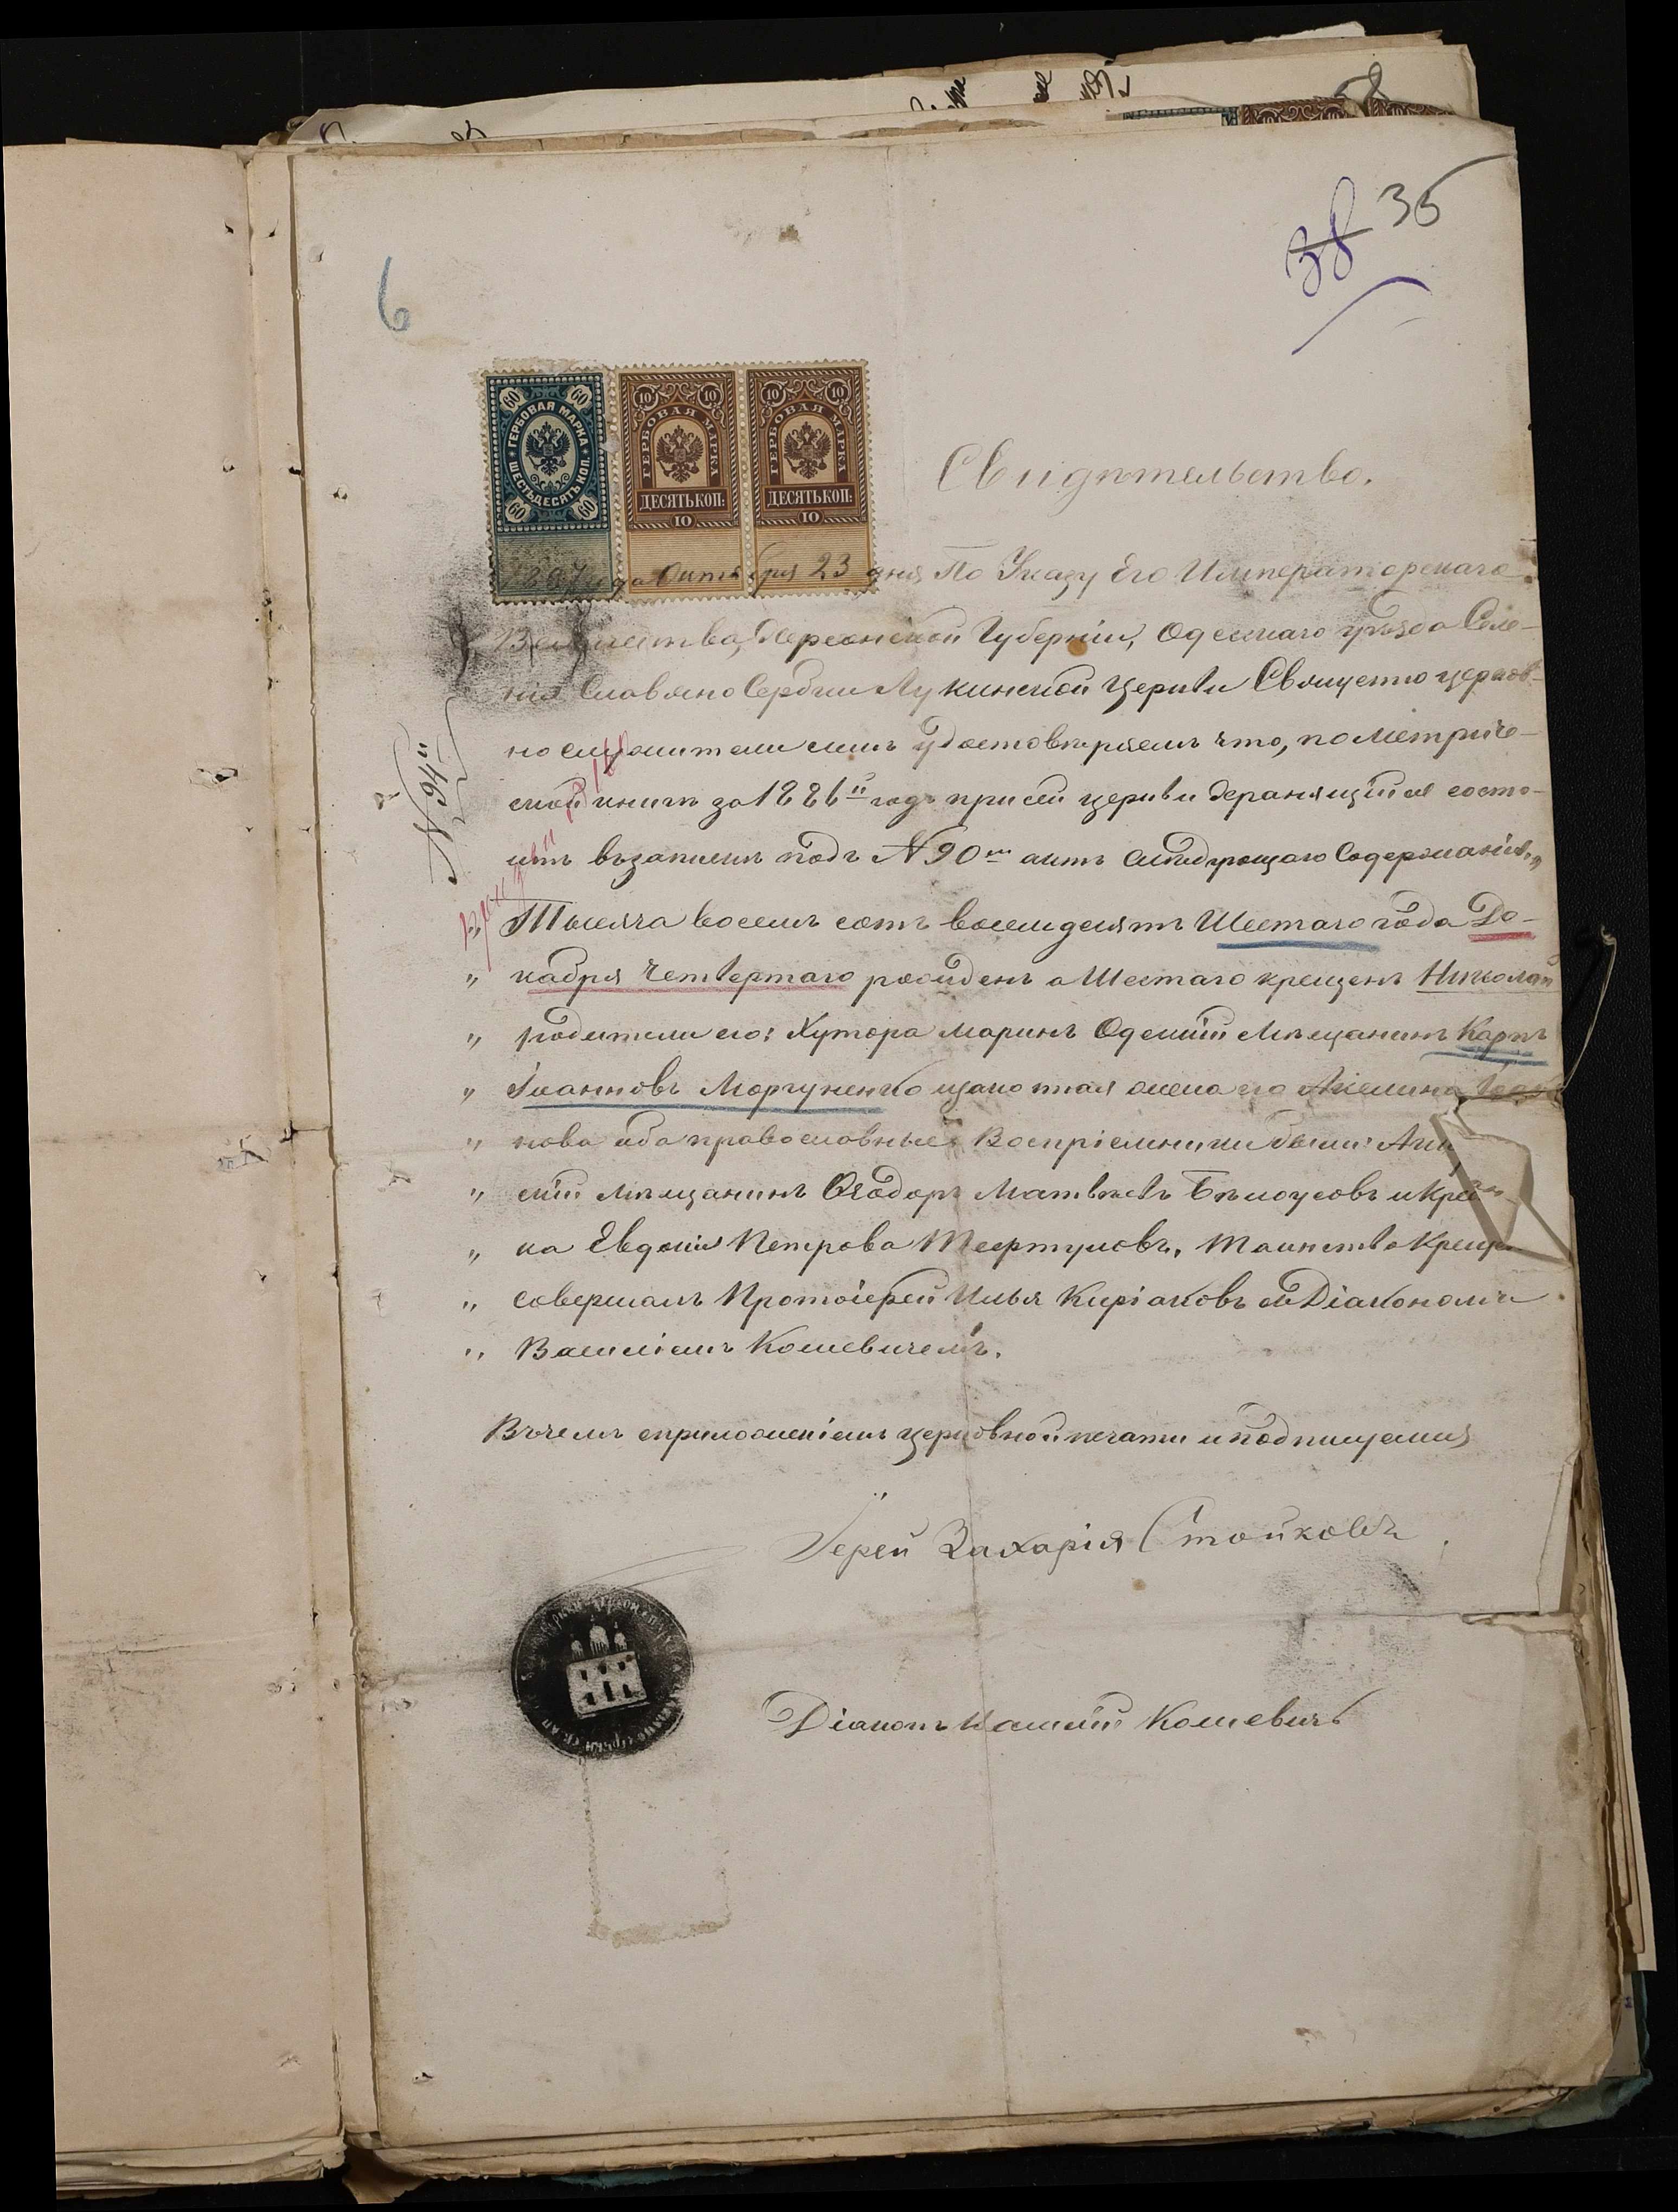 38 35
6
ГЕРБОВАЯ МАРКА ШЕСТЬДЕСЯТЬ КОП. 60 60 60 60
ГЕРБОВАЯ МАРКА 10 10 ДЕСЯТЬ КОП: 10
ГЕРБОВАЯ МАРКА 10 10 ДЕСЯТЬ КОП: 10
Свидѣтельство.
1897 года Октября 23 дня По Указу Его Императорскаго
Величества, Херсонской Губерніи, Одесскаго уѣзда Селе-
нія Славяно Сербки Лукинской Церкви Священно церков-
но служители симъ удостовѣряемъ что, по Метриче-
ской книгѣ за 1886й годъ при сей церкви хранящійся состо-
итъ възаписи подъ N 90мъ актъ слѣдующаго Содержанія„
N 94й
„ Тысяча восемь сотъ восемдесятъ Шестаго года Де-
„ кабря Четвертаго рожденъ а Шестаго крещенъ Николай
„ родители его: Хутора Маринъ Одесскій Мѣщанинъ Карпъ
„ Іоанновъ Моргуненко изаконная жена его Акилина
„ нова оба православные. Воспріемники были:
„ скій Мѣщанинъ Ѳеодоръ Матвѣевъ Бѣлоусовъ и
„ ка Евдокія Петрова Таинство Креще
„ совершалъ Протоіерей Илья Киріаковъ съ Діакономъ
„ Василіемъ Кошевичемъ.
Въчемъ сприложеніемъ церковной печати иподпишемся
Іерей Захарія Стойковъ
Діаконъ Василій Кошевичъ